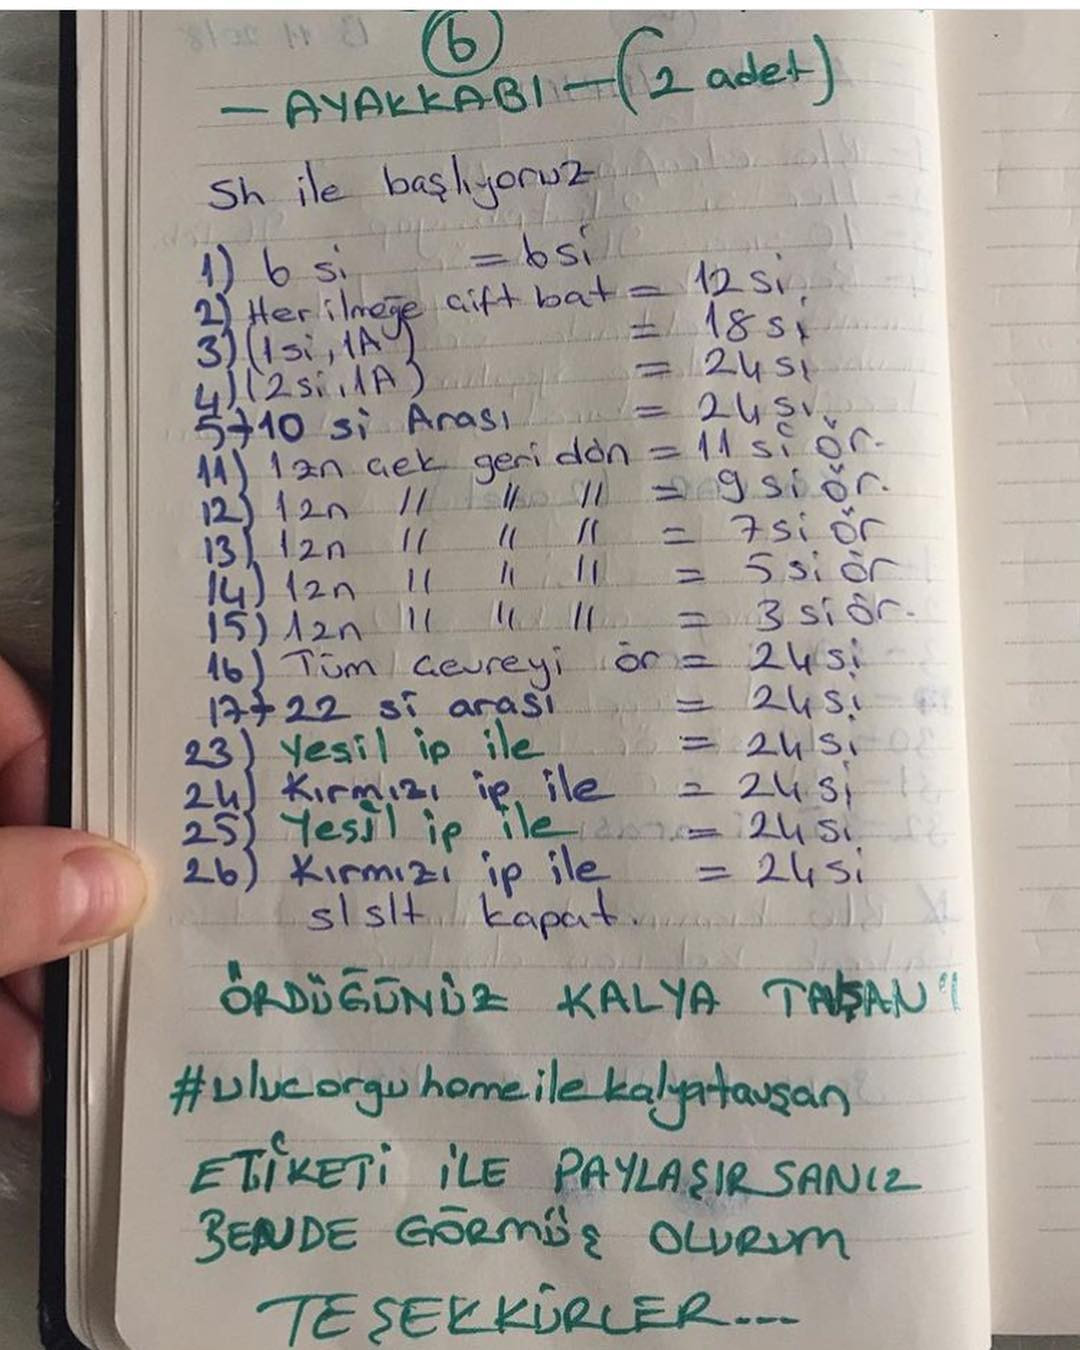 6
- AYAKKABI - (2 adet)
Sh ile başlıyoruz
1) 6 si = 6 si
2) Her ilmeğe çift bat = 12 si
3) (1si, 1A) = 18 si
4) (2si, 1A) = 24 si
5→10 si Arası = 24 si
11) 1zn çek geri dön = 11 si ör.
12) 1zn " " " = 9 si ör.
13) 1zn " " " = 7 si ör
14) 1zn " " " = 5 si ör
15) 1zn " " " = 3 si ör.
16) Tüm çevreyi ör = 24 si
17→22 si arası = 24 si
23) Yeşil ip ile = 24 si
24) Kırmızı ip ile = 24 si
25) Yeşil ip ile = 24 si
26) Kırmızı ip ile = 24 si
slslt kapat.
ÖRDÜĞÜNÜZ KALYA
#ulucorguhomeilekalyatavşan
ETİKETİ İLE PAYLAŞIRSANIZ
BENDE GÖRMÜŞ OLURUM
TEŞEKKÜRLER...